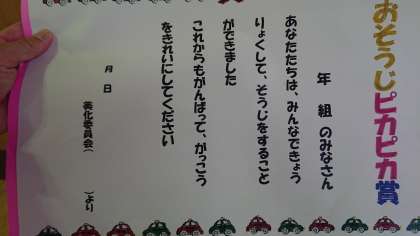 おそうじピカピカ賞
年 組 のみなさん
あなたたちは、みんなできょう
りょくして、そうじをすること
ができました
これからもがんばって、がっこう
をきれいにしてください
月 日
美化委員会( )より